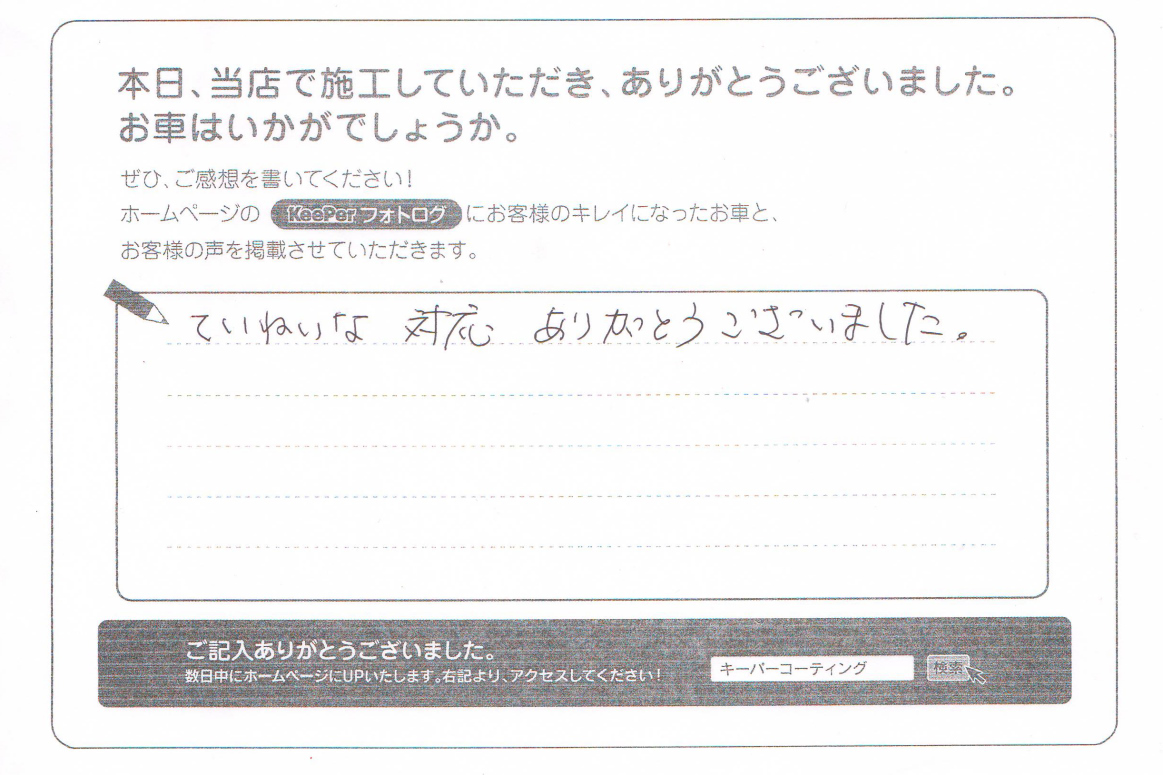 本日、当店で施工していただき、ありがとうございました。
お車はいかがでしょうか。
ぜひ、ご感想を書いてください！
ホームページの KeePer フォトログ にお客様のキレイになったお車と、
お客様の声を掲載させていただきます。
ていねいな 対応 ありがとうございました。
ご記入ありがとうございました。
数日中にホームページにUPいたします。右記より、アクセスしてください！
キーパーコーティング 検索